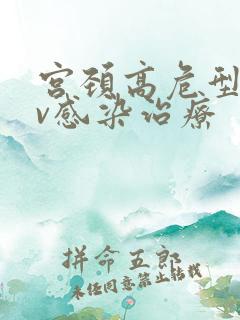 宫颈高危型
v感染治療
拼命五郎
未经同意禁止转载